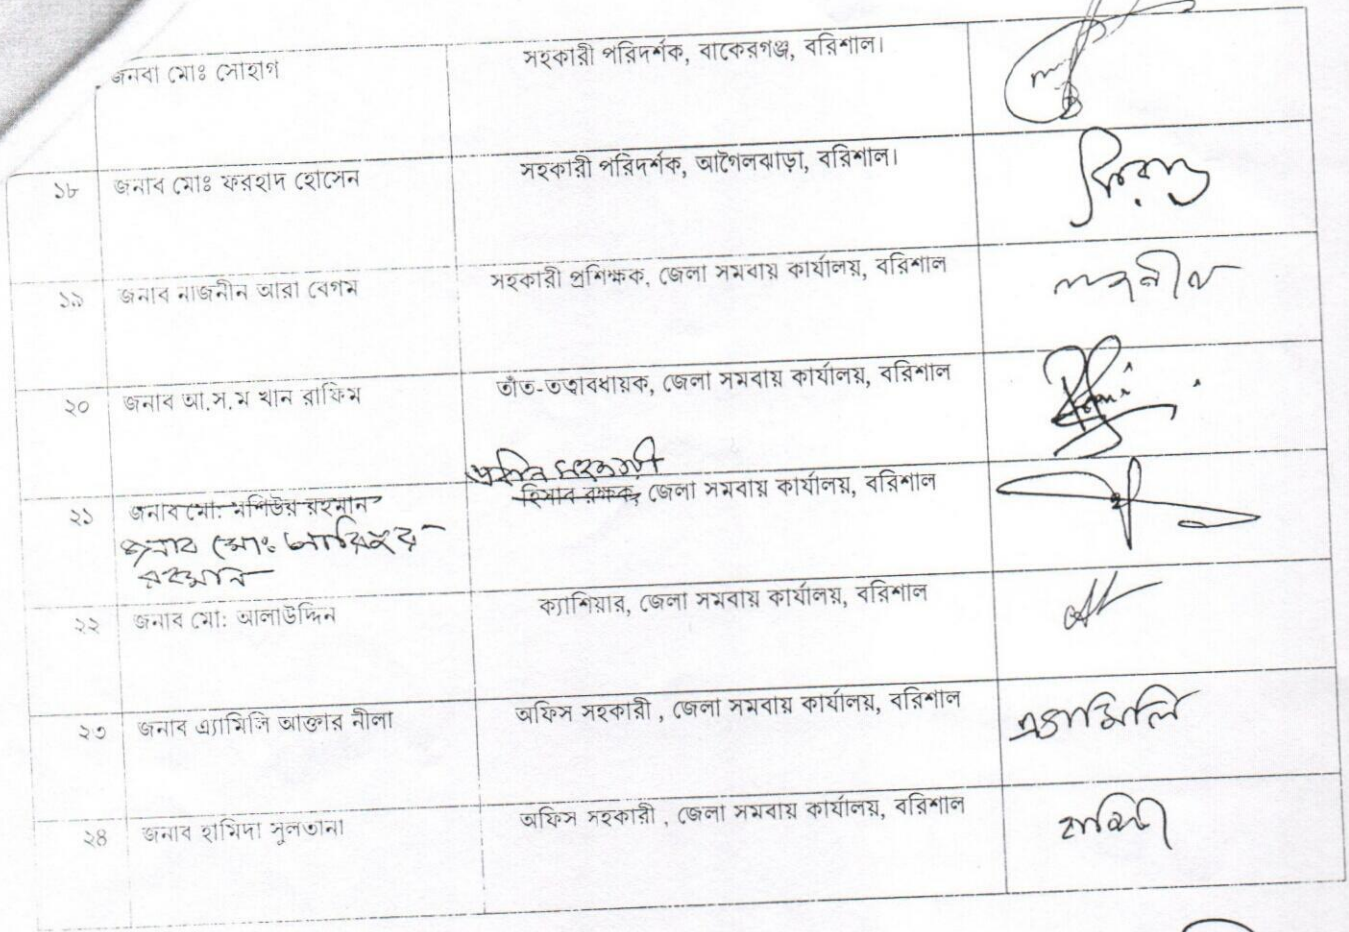 জনবা মোঃ সোহাগ সহকারী পরিদর্শক, বাকেরগঞ্জ, বরিশাল।
১৮ জনাব মোঃ ফরহাদ হোসেন সহকারী পরিদর্শক, আগৈলঝাড়া, বরিশাল।
১৯ জনাব নাজনীন আরা বেগম সহকারী প্রশিক্ষক, জেলা সমবায় কার্যালয়, বরিশাল
২০ জনাব আ.স.ম খান রাফিম তাঁত-তত্বাবধায়ক, জেলা সমবায় কার্যালয়, বরিশাল
প্রধান সহকারী
২১ জনাব মো: মশিউর রহমান হিসাব রক্ষক, জেলা সমবায় কার্যালয়, বরিশাল
জনাব মোঃ
রহমান
২২ জনাব মো: আলাউদ্দিন ক্যাশিয়ার, জেলা সমবায় কার্যালয়, বরিশাল
২৩ জনাব এ্যামিলি আক্তার নীলা অফিস সহকারী , জেলা সমবায় কার্যালয়, বরিশাল এ্যামিলি
২৪ জনাব হামিদা সুলতানা অফিস সহকারী , জেলা সমবায় কার্যালয়, বরিশাল